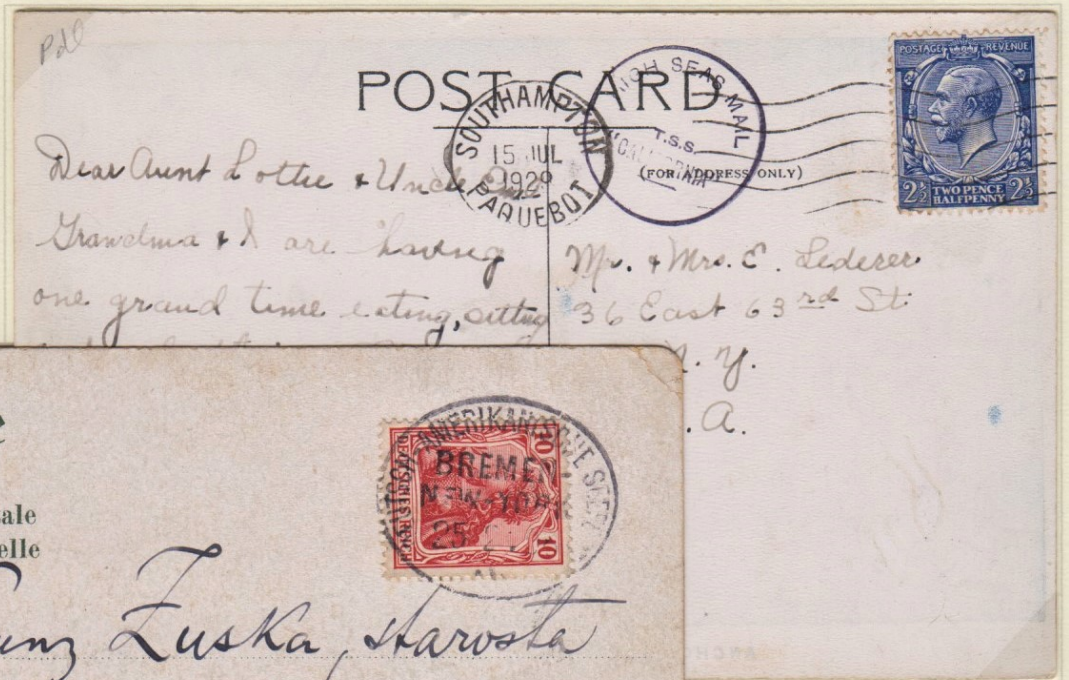 POST CARD
SOUTHAMPTON
15 JUL
1929
PAQUEBOT
HIGH SEAS MAIL
T.S.S.
"CALIFORNIA"
POSTAGE REVENUE
2½ TWO PENCE HALFPENNY 2½
(FOR ADDRESS ONLY)
Dear Aunt Lottie & Uncle
Grandma & I are having
one grand time eating, sitting
Mr. & Mrs. E. Lederer
36 East 63rd St.
N.Y.
.A.
AMERIKANISCHE
BREMEN
NEW-YORK
25
10
10
ale
elle
Zuska, starosta